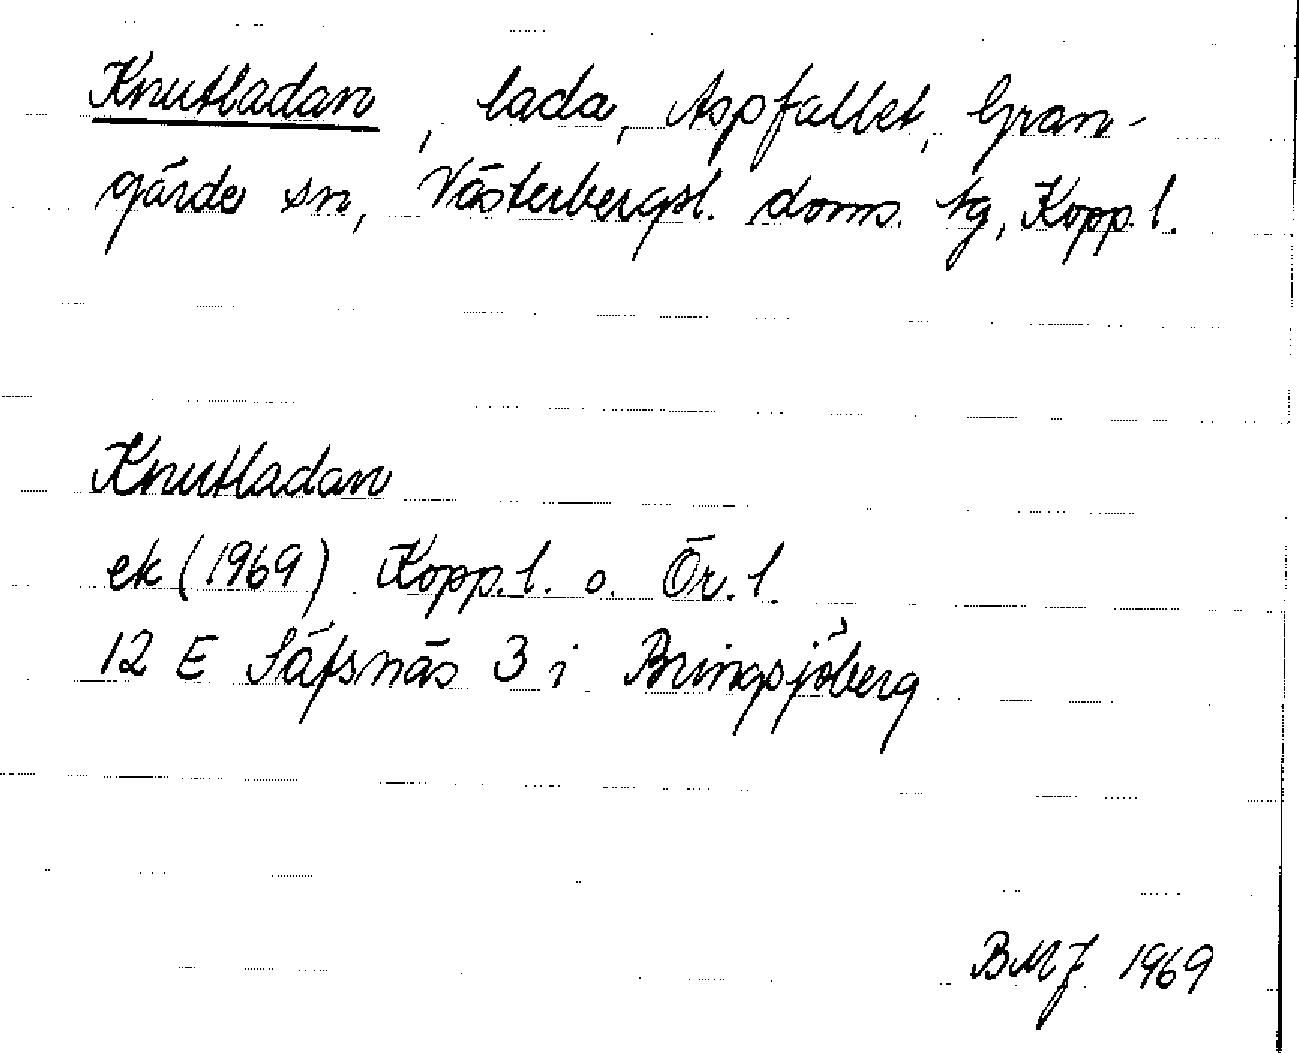 Knutladan, lada, Aspfallet, Gran-
gärde sn, Västerbergsl. doms. tg, Kopp. l.
Knutladan
ek (1969) Kopp. l. o. Ör. l.
12 E Säfsnäs 3 i Bringsjöberg
BMJ 1969